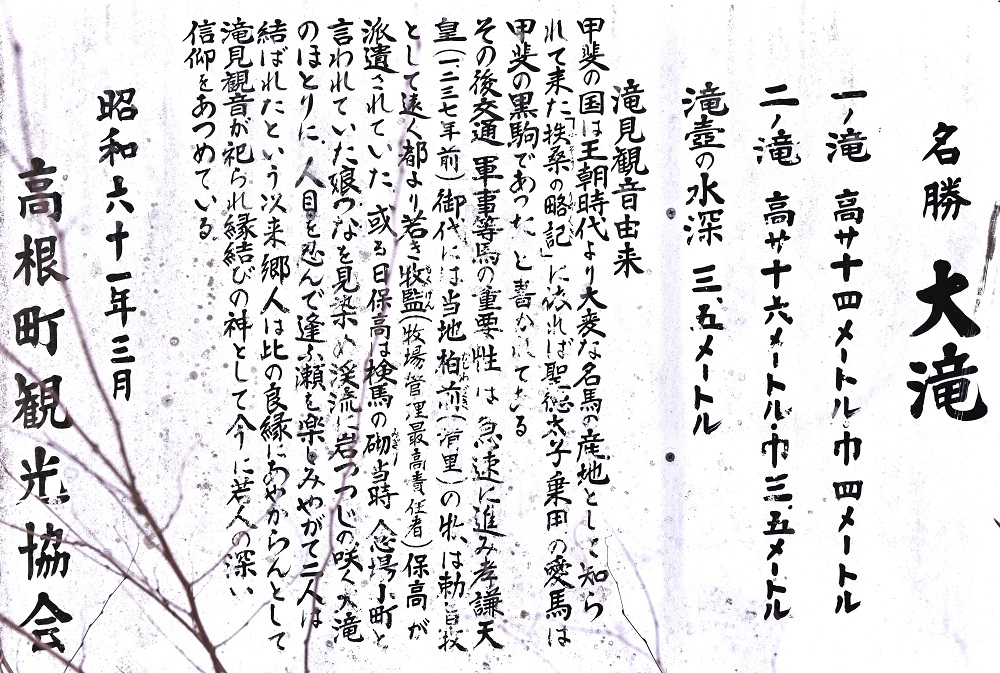 名勝 大滝
一ノ滝 高サ十四メートル 巾四メートル
二ノ滝 高サ十六メートル・巾三.五メートル
滝壺の水深 三.五メートル
滝見観音由来
甲斐の国は王朝時代より大変な名馬の産地として知ら
れて来た「扶桑の略記」に依れば聖徳太子乗用の愛馬は
甲斐の黒駒であった と書かれている
その後交通 軍事等馬の重要性は 急速に進み孝謙天
皇(一、二三七年前)御代には当地柏前(清里)の牧は勅旨牧
として遠く都より若き牧監(牧場管理最高責任者)保高が
派遣されていた 或る日保高は検馬の砌当時 念場小町と
言われていた娘つなを見染め 渓流に岩つつじの咲く大滝
のほとりに 人目を忍んで逢ふ瀬を楽しみやがて二人は
結ばれたという以来郷人は此の良縁にあやからんとして
滝見観音が祀られ縁結びの神として今に若人の深い
信仰をあつめている
昭和六十一年三月
高根町観光協会